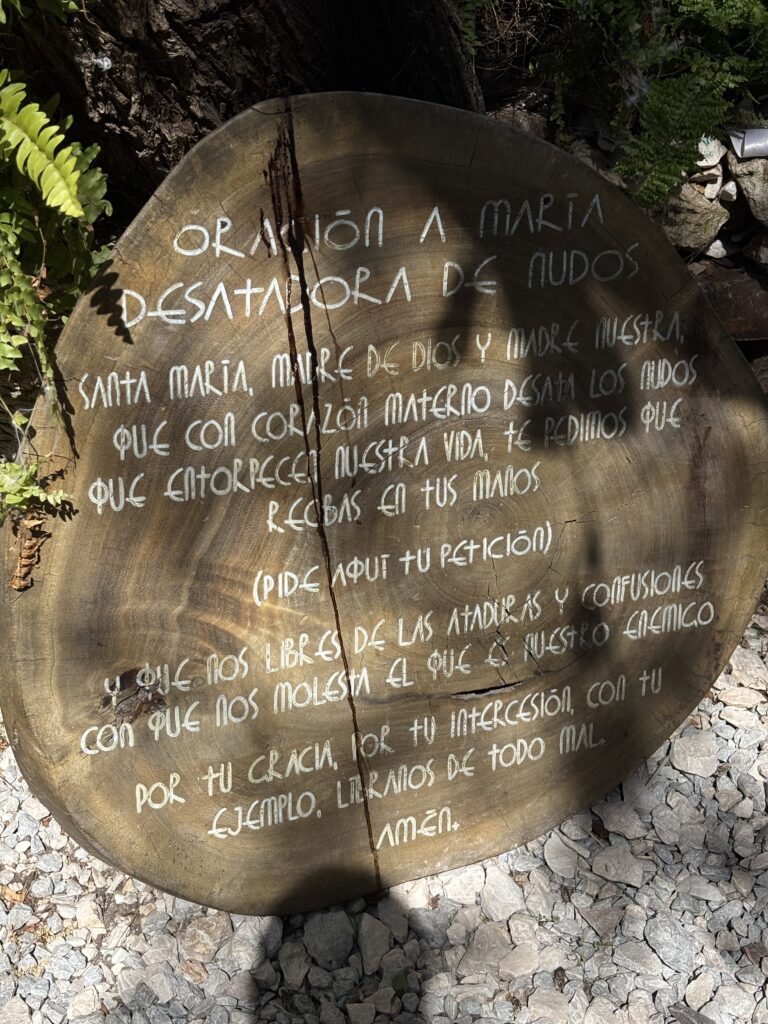 ORACIÓN A MARÍA
DESATADORA DE NUDOS
SANTA MARÍA, MADRE DE DIOS Y MADRE NUESTRA,
QUE CON CORAZÓN MATERNO DESATA LOS NUDOS
QUE ENTORPECEN NUESTRA VIDA, TE PEDIMOS QUE
RECIBAS EN TUS MANOS
(PIDE AQUÍ TU PETICIÓN)
Y QUE NOS LIBRES DE LAS ATADURAS Y CONFUSIONES
CON QUE NOS MOLESTA EL QUE ES NUESTRO ENEMIGO
POR TU GRACIA, POR TU INTERCESIÓN, CON TU
EJEMPLO, LIBRANOS DE TODO MAL.
AMÉN.